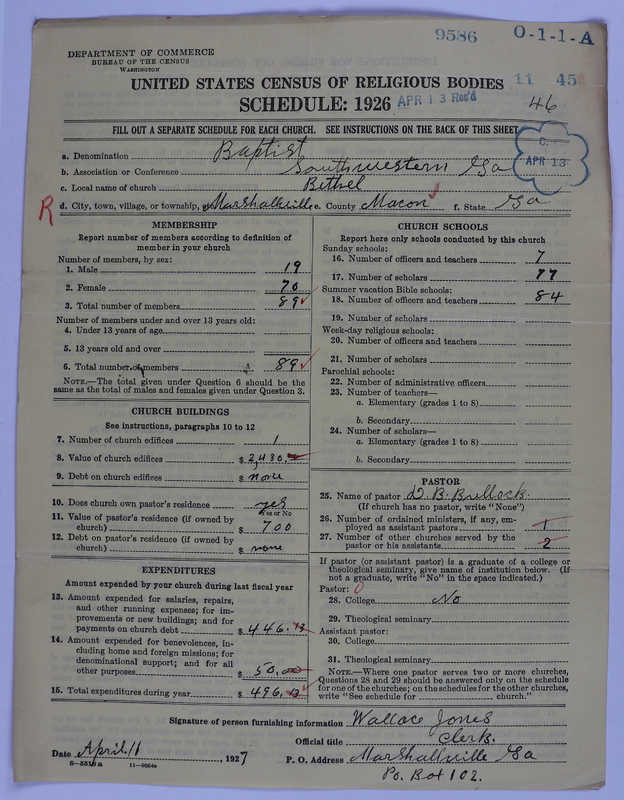 9586 O-1-1-A
DEPARTMENT OF COMMERCE
BUREAU OF THE CENSUS
WASHINGTON
UNITED STATES CENSUS OF RELIGIOUS BODIES
11 45
SCHEDULE: 1926 APR 13 Rec'd
46
FILL OUT A SEPARATE SCHEDULE FOR EACH CHURCH. SEE INSTRUCTIONS ON THE BACK OF THIS SHEET
C.
APR 13
a. Denomination Baptist
b. Association or Conference Southwestern Ga
c. Local name of church Bethel
R d. City, town, village, or township, Marshallville e. County Macon f. State Ga
MEMBERSHIP
Report number of members according to definition of
member in your church
Number of members, by sex:
1. Male 19
2. Female 70
3. Total number of members 89
Number of members under and over 13 years old:
4. Under 13 years of age
5. 13 years old and over
6. Total number of members 89
NOTE.—The total given under Question 6 should be the
same as the total of males and females given under Question 3.
CHURCH BUILDINGS
See instructions, paragraphs 10 to 12
7. Number of church edifices 1
8. Value of church edifices $ 2,430.
9. Debt on church edifices $ none
10. Does church own pastor's residence yes
Yes or No
11. Value of pastor's residence (if owned by
church) $ 700
12. Debt on pastor's residence (if owned by
church) $ none
EXPENDITURES
Amount expended by your church during last fiscal year
13. Amount expended for salaries, repairs,
and other running expenses; for im-
provements or new buildings; and for
payments on church debt $ 446.13
14. Amount expended for benevolences, in-
cluding home and foreign missions; for
denominational support; and for all
other purposes $ 50.00
15. Total expenditures during year $ 496.13
CHURCH SCHOOLS
Report here only schools conducted by this church
Sunday schools:
16. Number of officers and teachers 7
17. Number of scholars 77
Summer vacation Bible schools:
18. Number of officers and teachers 84
19. Number of scholars
Week-day religious schools:
20. Number of officers and teachers
21. Number of scholars
Parochial schools:
22. Number of administrative officers
23. Number of teachers—
a. Elementary (grades 1 to 8)
b. Secondary
24. Number of scholars—
a. Elementary (grades 1 to 8)
b. Secondary
PASTOR
25. Name of pastor D. B. Bullock.
(If church has no pastor, write "None")
26. Number of ordained ministers, if any, em-
ployed as assistant pastors 1
27. Number of other churches served by the
pastor or his assistants 2
If pastor (or assistant pastor) is a graduate of a college or
theological seminary, give name of institution below. (If
not a graduate, write "No" in the space indicated.)
Pastor: 0
28. College No
29. Theological seminary
Assistant pastor:
30. College
31. Theological seminary
NOTE.—Where one pastor serves two or more churches,
Questions 28 and 29 should be answered only on the schedule
for one of the churches; on the schedules for the other churches,
write "See schedule for church."
Signature of person furnishing information Wallace Jones
Official title Clerk.
Date April 11, 1927 P. O. Address Marshallville Ga
8-5518a 11-9564a
Po. Box 102.